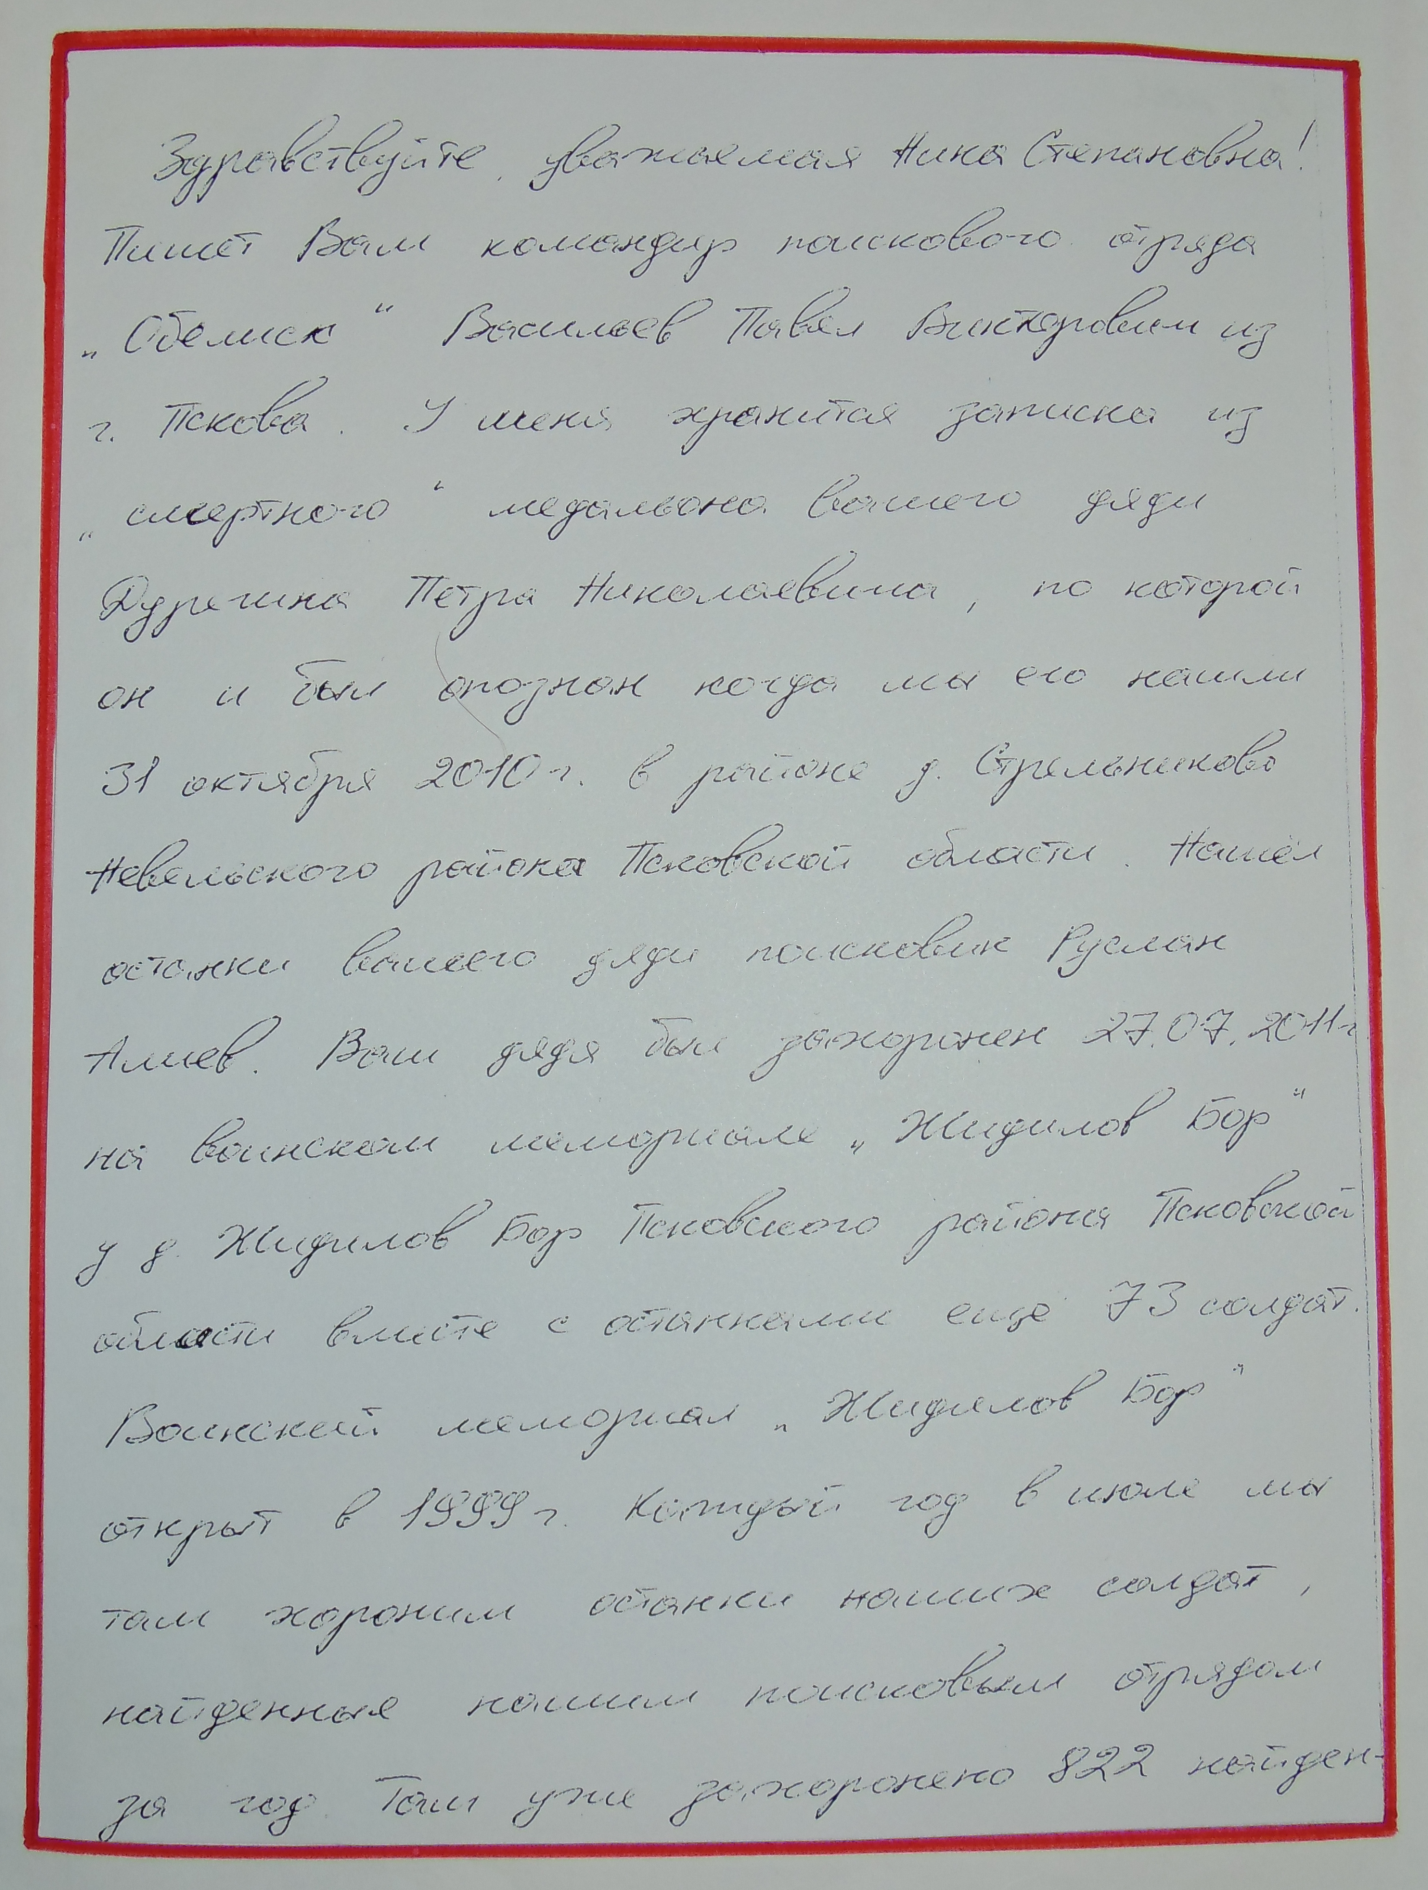 Здравствуйте, уважаемая Нина Степановна!
Пишет Вам командир поискового отряда
„Обелиск“ Васильев Павел Викторович из
г. Пскова. У меня хранится записка из
„смертного“ медальона вашего дяди
Петра Николаевича, по которой
он и был опознан когда мы его нашли
31 октября 2010 г. в районе д. Стрельниково
Невельского района Псковской области. Нашёл
останки вашего дяди поисковик Руслан
Алиев. Ваш дядя был захоронен 27.07.2011 г
на воинском мемориале „Жидилов Бор“
у д. Жидилов Бор Псковского района Псковской
области вместе с останками еще 73 солдат.
Воинский мемориал „Жидилов Бор“
открыт в 1999 г. Каждый год в июле мы
там хороним останки наших солдат,
найденные нашим поисковым отрядом
за год. Там уже захоронено 822 найден-